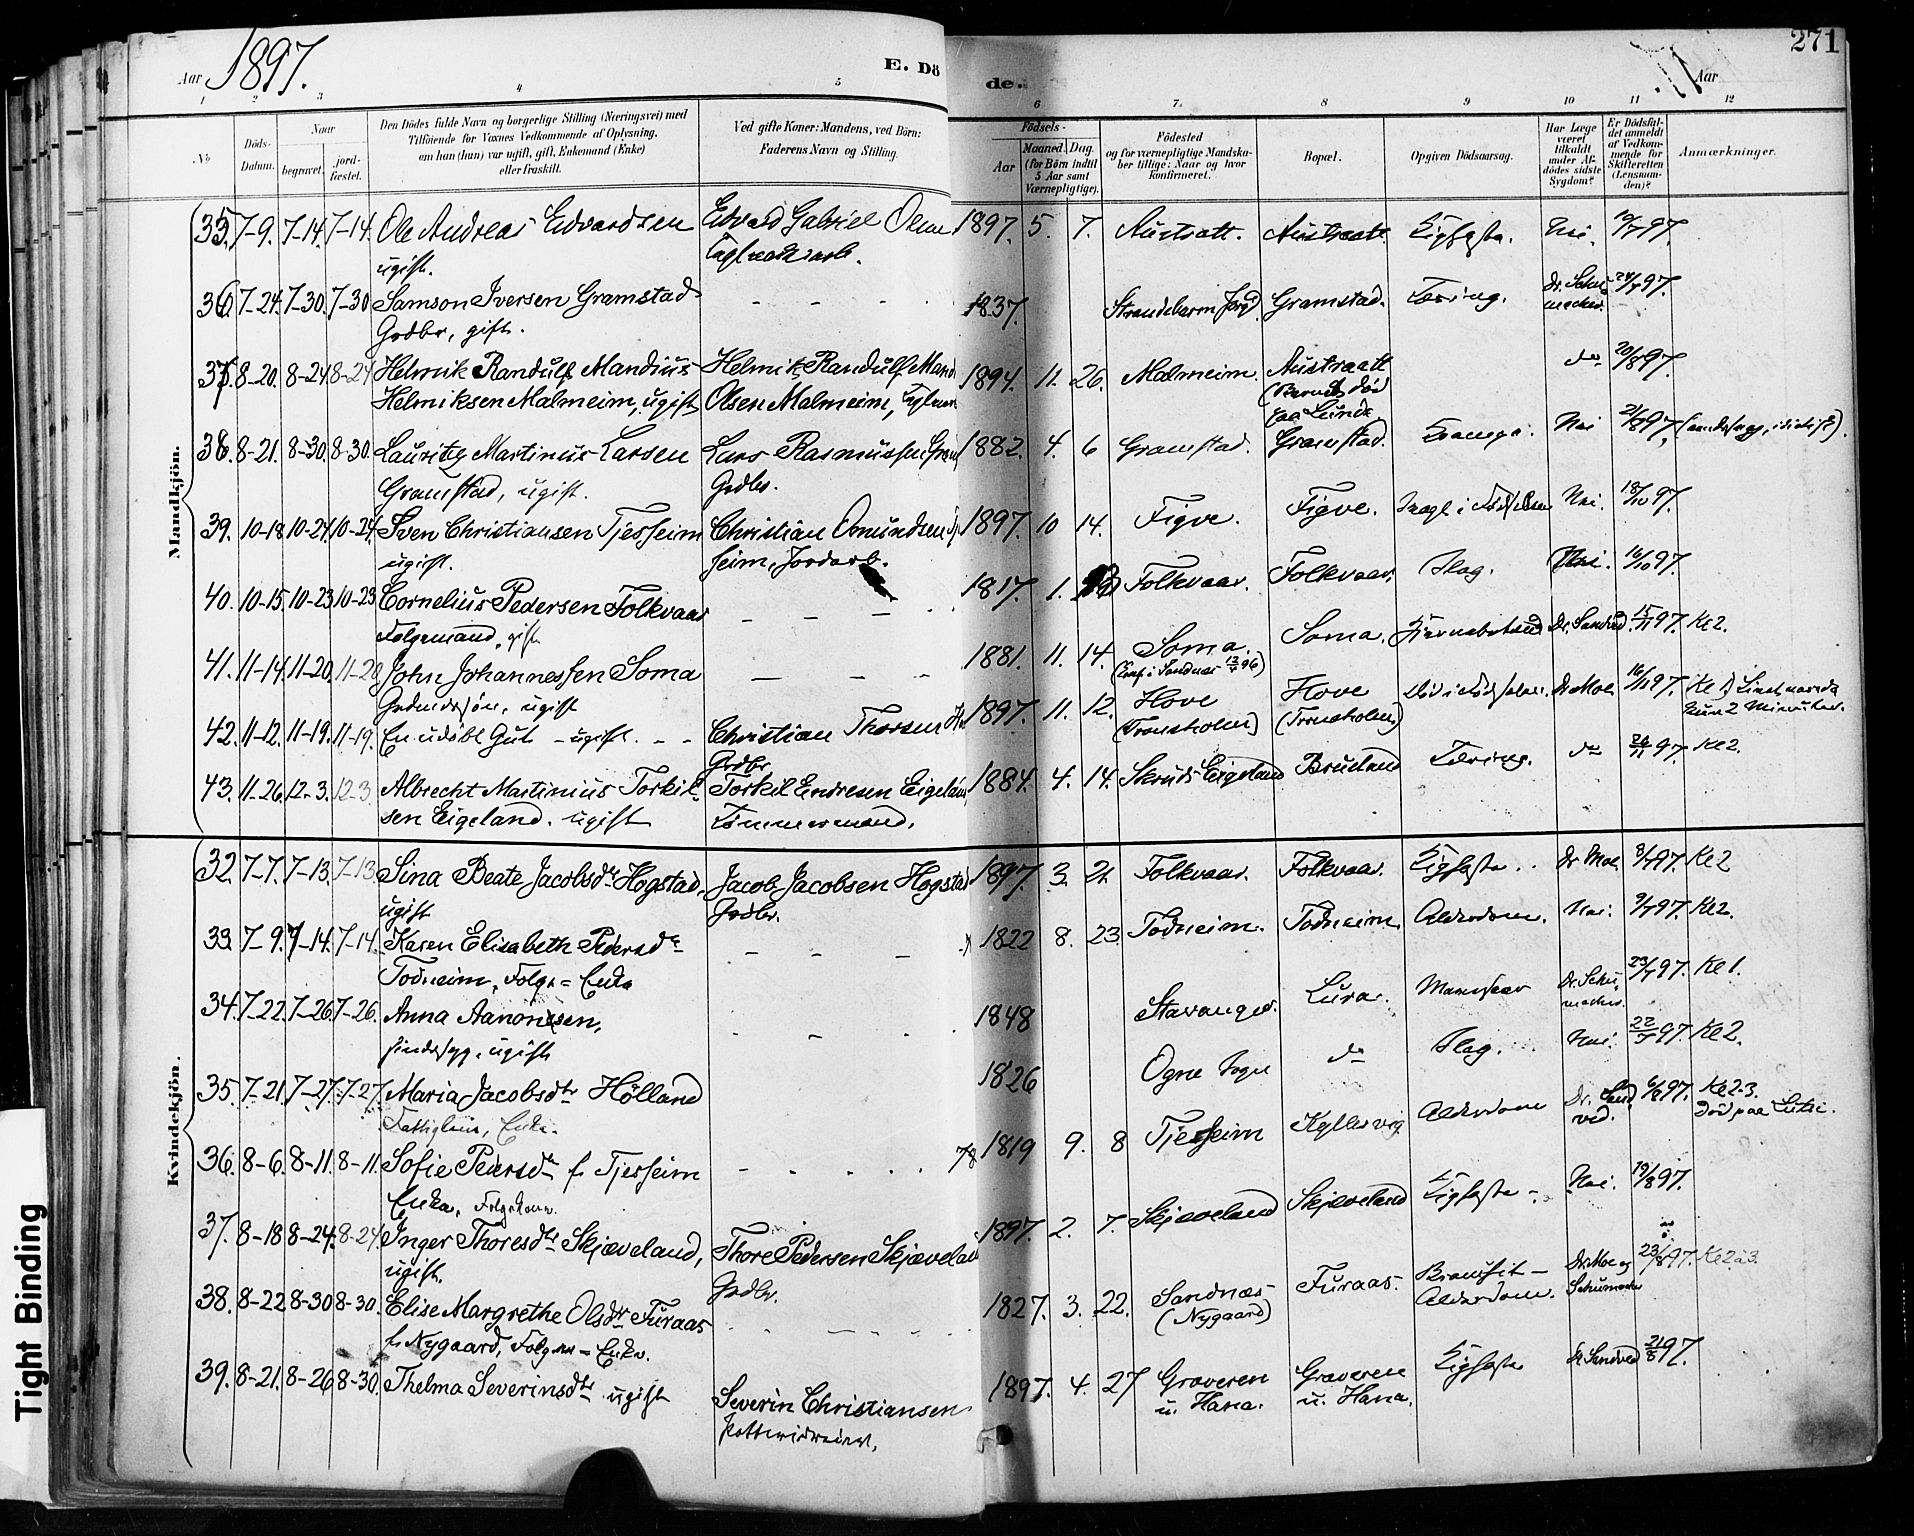 271
Aar 1897.
E. Dö
de.
Aar
1 2 3 4 5 6 7. 8 9 10 11 12
No
Döds-Datum.
Naar
begravet.
jord-fæstet.
Den Dödes fulde Navn og borgerlige Stilling (Næringsvei) med
Tilföiende for Voxnes Vedkommende af Oplysning,
om han (hun) var ugift, gift, Enkemand (Enke)
eller fraskilt.
Ved gifte Koner: Mandens, ved Börn:
Faderens Navn og Stilling.
Födsels-
Aar
Maaned. Dag.
(for Börn indtil
5 Aar samt
Værnepligtige).
Födested
og for værnepligtige Mandska-
ber tillige: Naar og hvor
konfirmeret.
Bopæl.
Opgiven Dödsaarsag.
Har Læge
været
tilkaldt
under Af-
dödes sidste
Sygdom?
Er Dödsfal-
det anmeldt
af Vedkom-
mende for
Skifteretten
(Lensman-
den)?
Anmærkninger.
Mandkjön.
35. 7-9. 7-14. 7-14. Ole Andreas Edvardsen Edvard Gabriel Olsen 1897. 5. 7. Austratt. Austraatt Nei.
ugift.
36. 7-24. 7-30. 7-30 Samson Iversen Gramstad - - - 1837. Strandebarm Gramstad. Tæring. Dr. Schumacher 24/7 97.
Grdbr, gift.
37. 8-20. 8-24. 8-24 Helmik Randulf Mandius Helmik Randulf Mand 1894. 11. 26. Malmeim. Austraatt do 20/8 97.
Helmiksen Malmeim, ugift Olsen Malmeim, (Barnet død
paa Lunde
38. 8-21. 8-30. 8-30. Lauritz Martinus Larsen Lars Rasmussen 1882. 4. 6 Gramstad. Gramstad. Krampe. Nei 21/8 97.
Gramstad, ugift. Grdbr.
39. 10-18. 10-24. 10-24. Sven Christiansen Tjessheim Christian Osmundsen 1897. 10 14. Figve. Figve. Nei. 18/10 97.
ugift. heim, Jordarb.
40. 10-15. 10-23. 10-23 Cornelius Pedersen Folkvaar - - - 1817. 1. Folkvaar. Folkvaar. Slag. Nei. 16/10 97.
Folgemand, gift
41. 11-14. 11-20. 11-20. John Johannessen Soma - - - 1881. 11. 14. Soma. Soma. Dr. Sandved. 15/11 97. Kl 2.
Grdmdssøn, ugift (Conf. i Sandnes 96)
42. 11-12. 11-19. 11-19. En udøbt Gut - ugift. - - Christian Thorsen 1897. 11. 12. Hove Hove Dr. Moe 16/11 97.
Grdbr (Tronsholm) (Tronsholm) kun 2 Minuter.
43. 11-26. 12-3. 12-3 Albrecht Martinius Torkil- Torkil Endresen Eigeland 1884. 4. 14. Skruds Eigeland Brueland Tæring. do 97. Kl 2.
sen Eigeland. ugift Tømmermand.
Kvindekjön.
32. 7-7. 7-13. 7-13 Sina Beate Jacobsdtr Hogstad. Jacob Jacobsen Hogstad 1897. 3. 21. Folkvaar. Folkvaar. Dr. Moe 8/7 97. Kl 2
ugift Grdbr.
33. 7-9. 7-14. 7-14. Karen Elisabeth Pedersdtr - - - 1822 8. 23. Todneim. Todneim. Alderdom. Nei. 9/7 97. Kl 2.
Todneim, Folge-Enke
34. 7-22. 7-26. 7-26. Anna Aanonsen, - - 1848 Stavanger. Lura. Dr. Schumacher. 23/7 97. Kl 1.
sindssyg, ugift
35. 7-21. 7-27. 7-27. Maria Jacobsdtr Hölland 1826 Ogne Sogn do Slag. Nei. 22/7 97. Kl 2.
Fattiglem, Enke.
36. 8-6. 8-11. 8-11. Sofie Pedersdtr f. Tjessheim - - - - 1819 9. 8 Tjesheim Kyllesvig Alderdom Dr. Sandved. 6/8 97. Kl 2-3.
Enke, Folgekone
37. 8-18 8-24. 8-24 Inger Thoresdtr Skjæveland, Thore Pedersen Skjæveland 1897. 2. 7. Skjæveland Skjæveland Nei. 19/8 97.
ugift. Grdbr.
38. 8-22 8-30 8-30. Elise Margrethe Olsdtr Furaas - - - 1827. 3. 22. Sandnæs Furaas. Bronkit - Dr. Moe og 23/8 97. Kl 2 à 3.
f. Nygaard, Folge-Enke. (Nygaard) Alderdom. Schumacher
39. 8-21. 8-26 8-30. Thelma Severinsdtr ugift Severin Christiansen 1897. 4. 27 Graveren Graveren Dr. Sandved 21/8 97.
Potteridreier. u. Hana. u. Hana.
Tight Binding